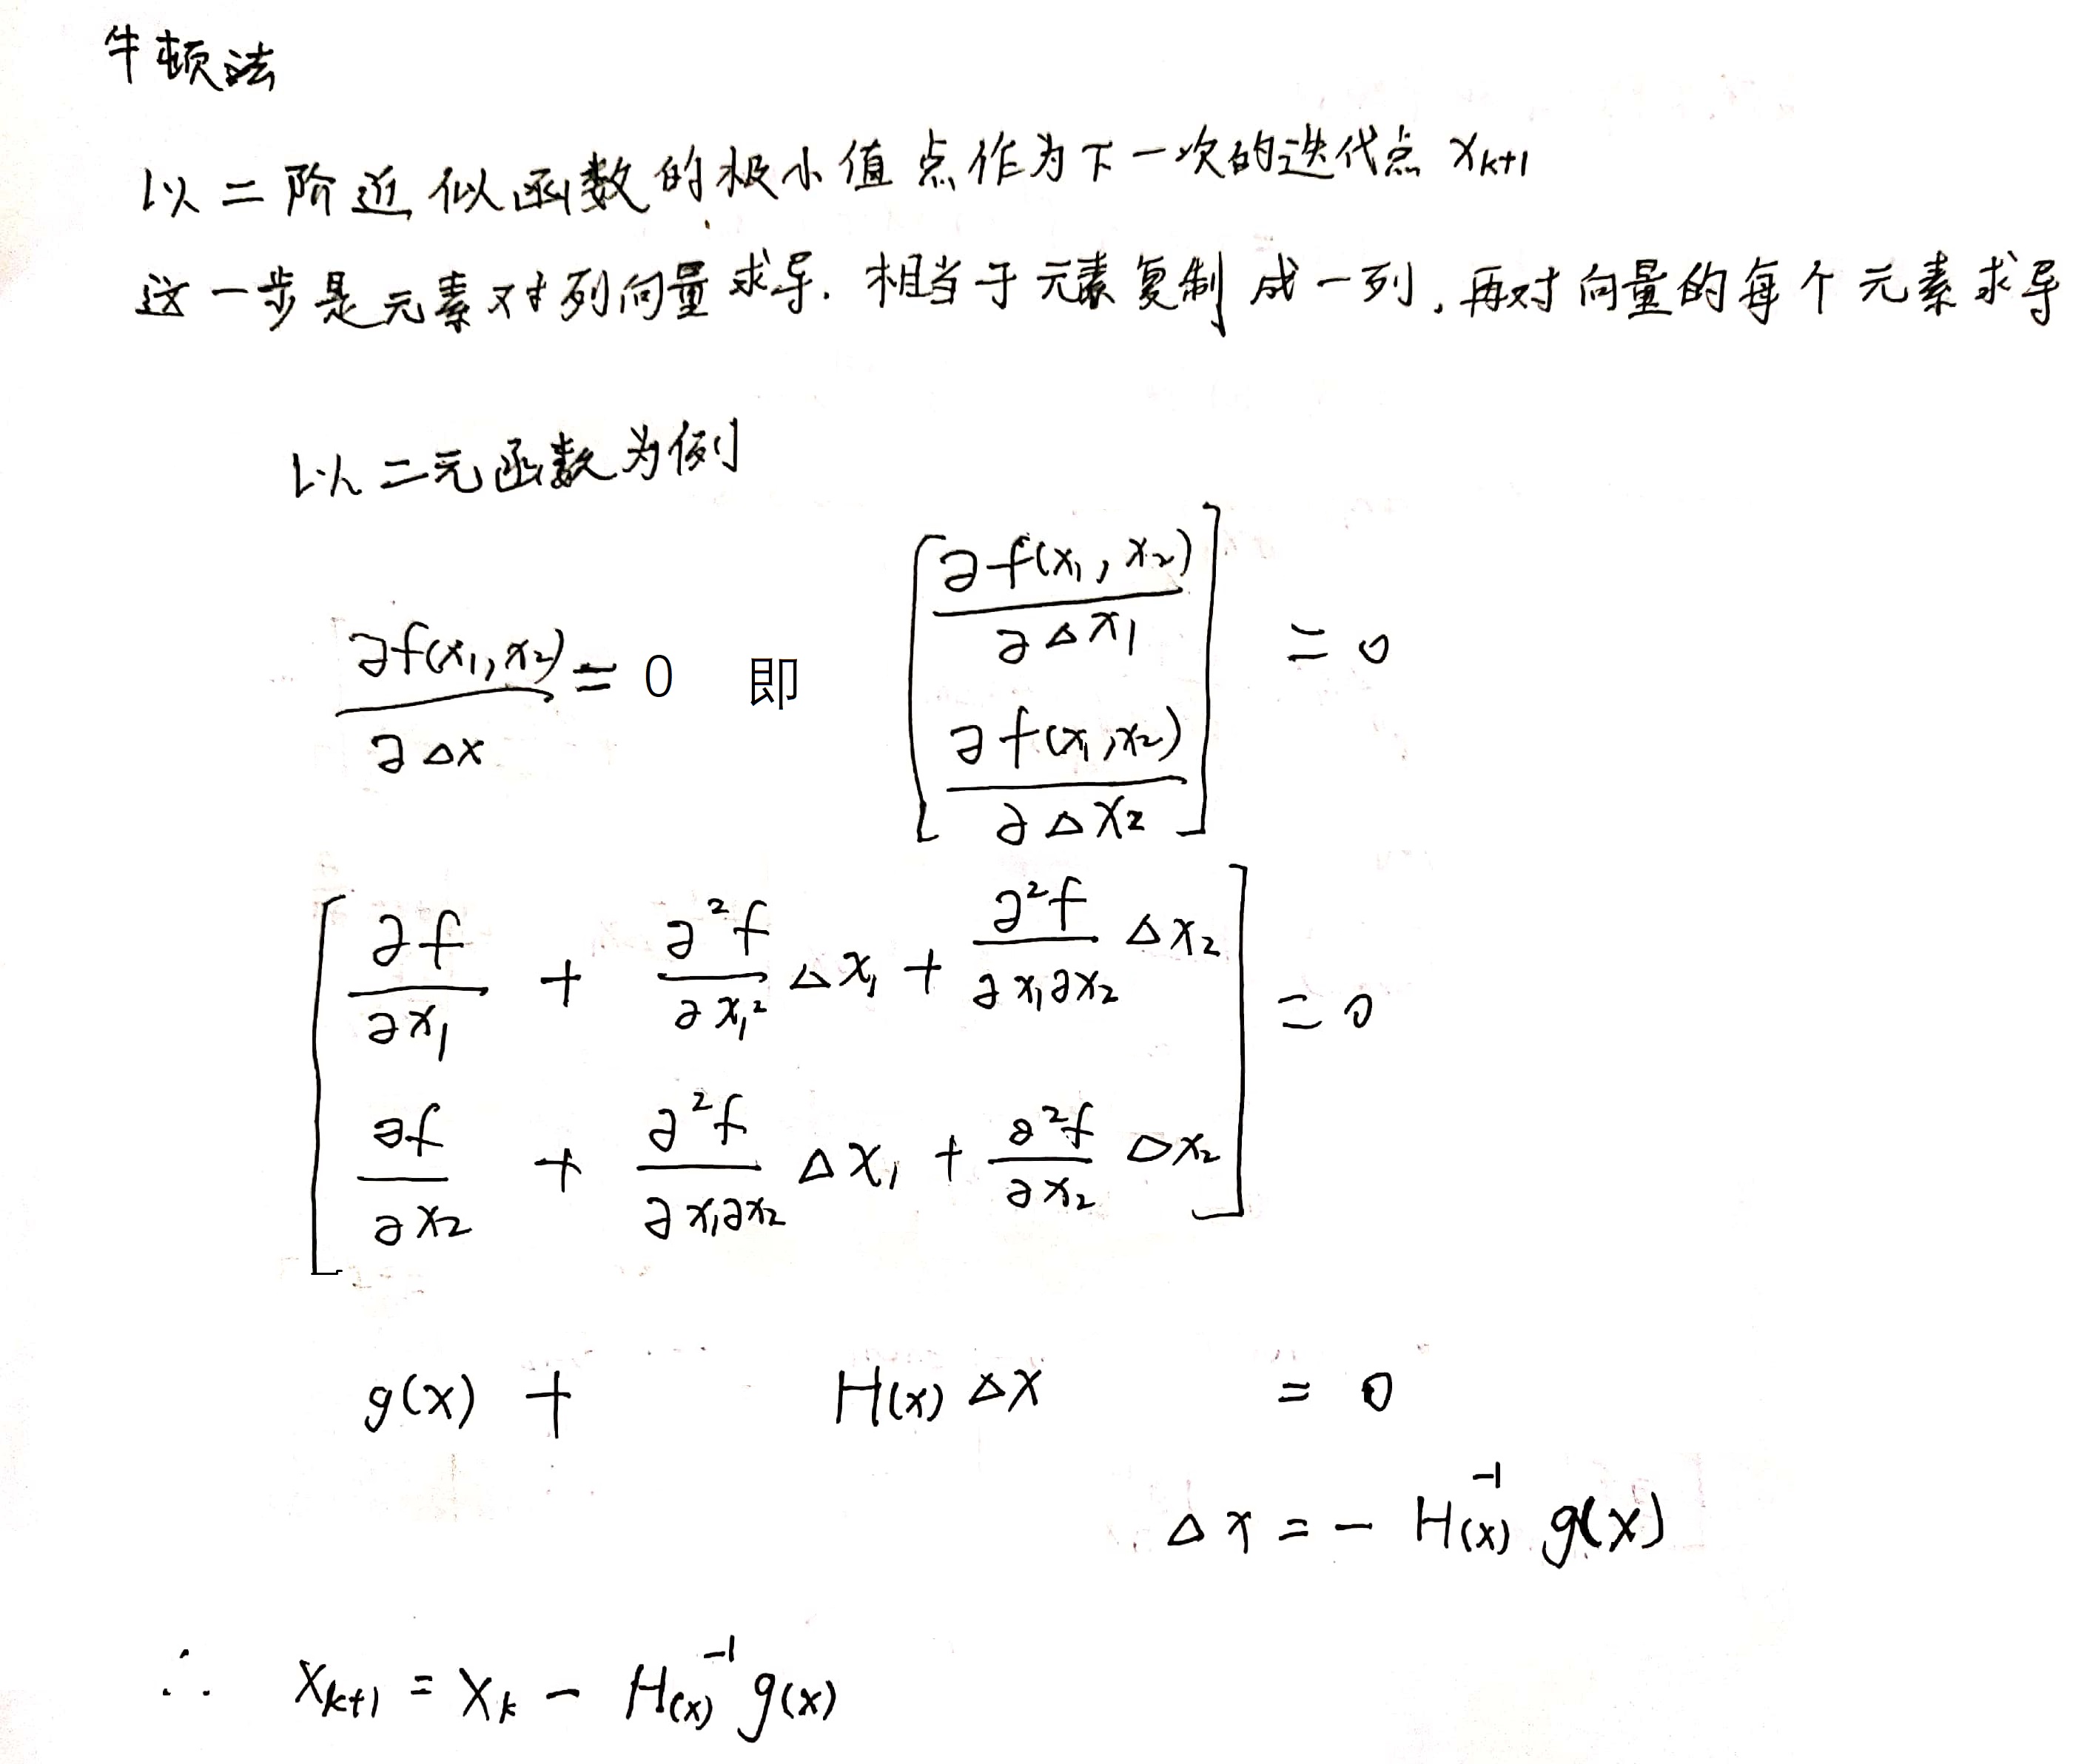 牛顿法
以二阶近似函数的极小值点作为下一次的迭代点 x_{k+1}
这一步是元素对列向量求导. 相当于元素复制成一列, 再对向量的每个元素求导
以二元函数为例
∂f(x₁,x₂)/∂Δx = 0 即 [∂f(x₁,x₂)/∂Δx₁ ; ∂f(x₁,x₂)/∂Δx₂] = 0
[∂f/∂x₁ + ∂²f/∂x₁² Δx₁ + ∂²f/∂x₁∂x₂ Δx₂ ;
∂f/∂x₂ + ∂²f/∂x₁∂x₂ Δx₁ + ∂²f/∂x₂ Δx₂] = 0
g(x) + H(x) Δx = 0
Δx = - H(x)⁻¹ g(x)
∴ x_{k+1} = x_k - H(x)⁻¹ g(x)